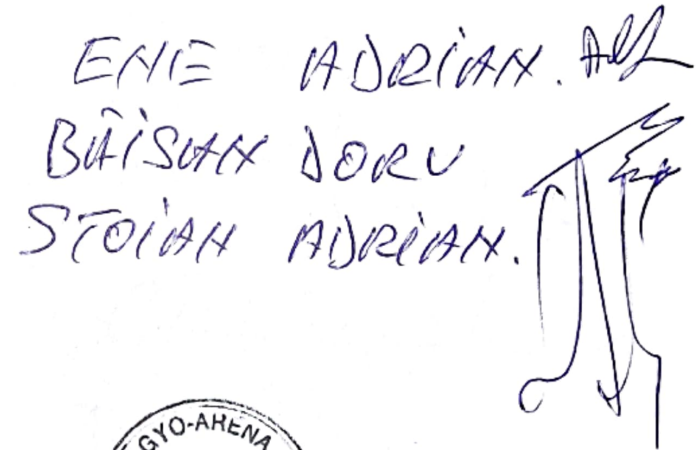 ENE ADRIAN.
BÂISAN DORU
STOIAN ADRIAN.
GYO-ARENA